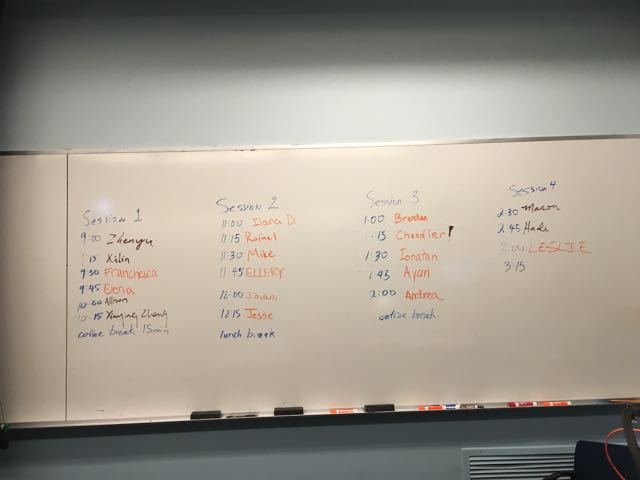 Session 1
9:00 Zhenyu
15 Xilin
9:30 Franchesca
9:45 Elena
10:00 Allison
10:15 Xinying Zheng
coffee break 15min
Session 2
11:00 Ilana D.
11:15 Rafael
11:30 Mike
11:45 ELLERY
12:00 Jovan
12:15 Jesse
lunch break
Session 3
1:00 Brendan
:15 Chandler!
1:30 Ionatan
1:45 Ayan
2:00 Andrea
coffee break
Session 4
2:30 Mason
2:45 Hadi
:00 LESLIE
3:15